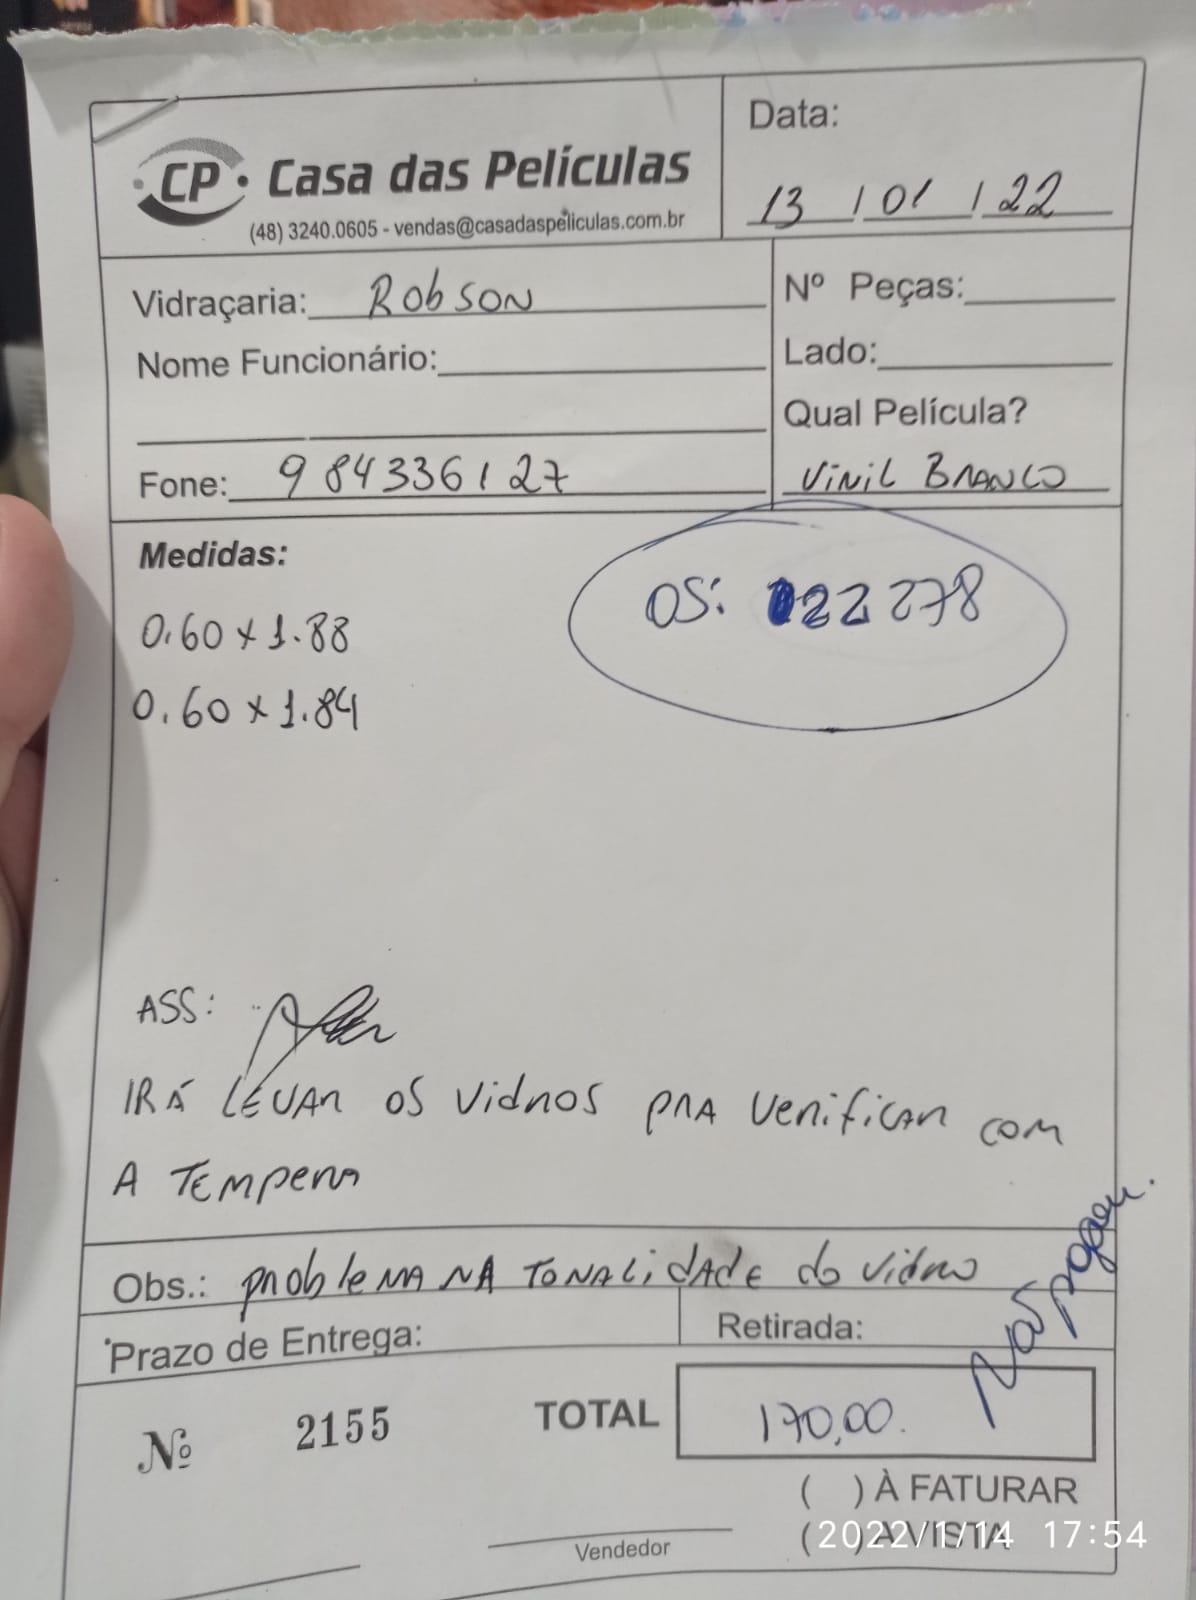 CP
Casa das Películas
(48) 3240.0605 - vendas@casadaspeliculas.com.br
Data:
13 / 01 / 22
Vidraçaria: Robson
Nome Funcionário:
Fone: 984336127
Nº Peças:
Lado:
Qual Película?
Vinil Branco
Medidas:
0.60 x 1.88
0.60 x 1.84
OS: 22278
ASS:
IRÁ LEVAR OS VIDROS PRA VERIFICAR COM
A TEMPERA
Obs.: PROBLEMA NA TONALIDADE DO VIDRO
Prazo de Entrega:
Retirada:
Não pagou.
Nº 2155
TOTAL 170,00.
( ) À FATURAR
( ) A VISTA
2022/1/14 17:54
Vendedor